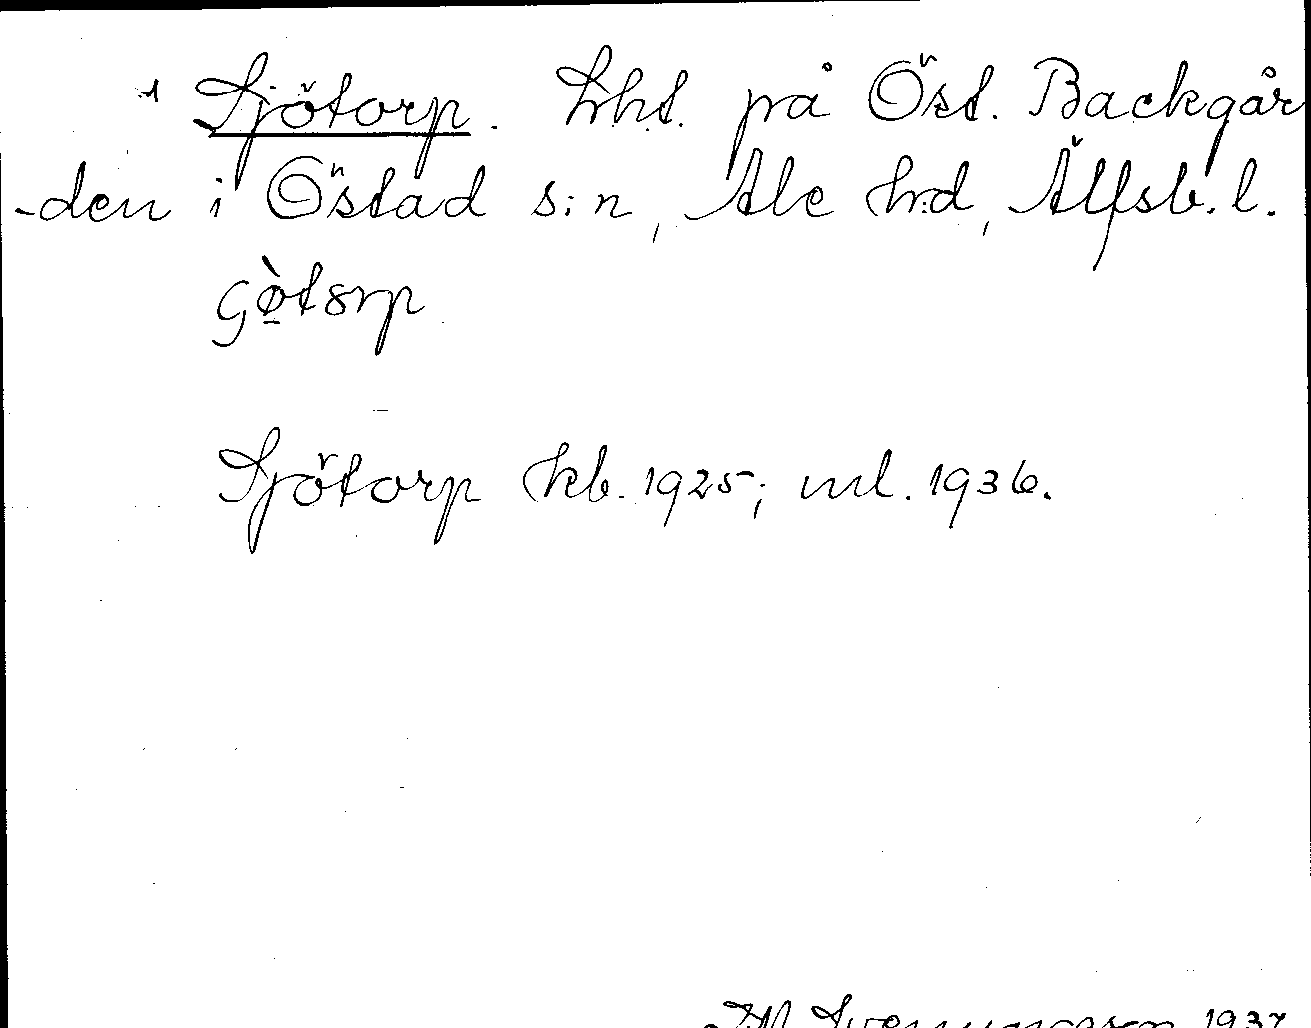 1 Sjötorp. Lht. på Öst. Backgår
-den i Östad s:n, Ale h:d, Älfsb. l.
Sjötorp kb. 1925; ml. 1936.
1937